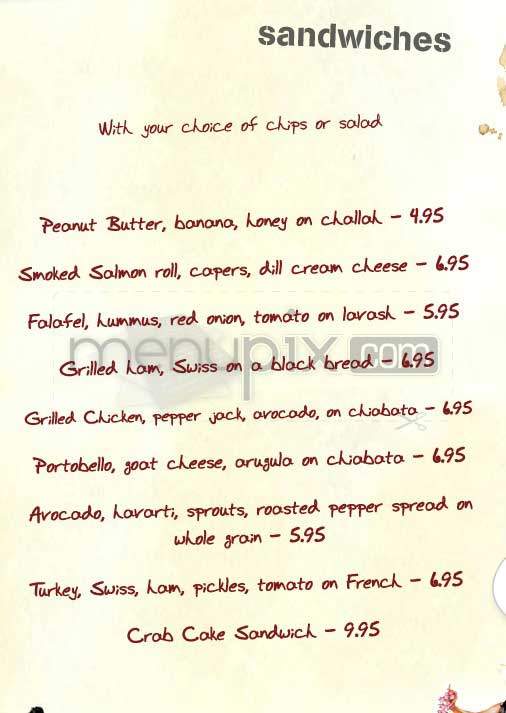 sandwiches
With your choice of chips or salad
Peanut Butter, banana, honey on challah - 4.95
Smoked Salmon roll, capers, dill cream cheese - 6.95
Falafel, hummus, red onion, tomato on lavash - 5.95
menupix.com
Grilled ham, Swiss on a black bread - 6.95
Grilled Chicken, pepper jack, avocado, on chiabata - 6.95
Portobello, goat cheese, arugula on chiabata - 6.95
Avocado, havarti, sprouts, roasted pepper spread on
whole grain - 5.95
Turkey, Swiss, ham, pickles, tomato on French - 6.95
Crab Cake Sandwich - 9.95